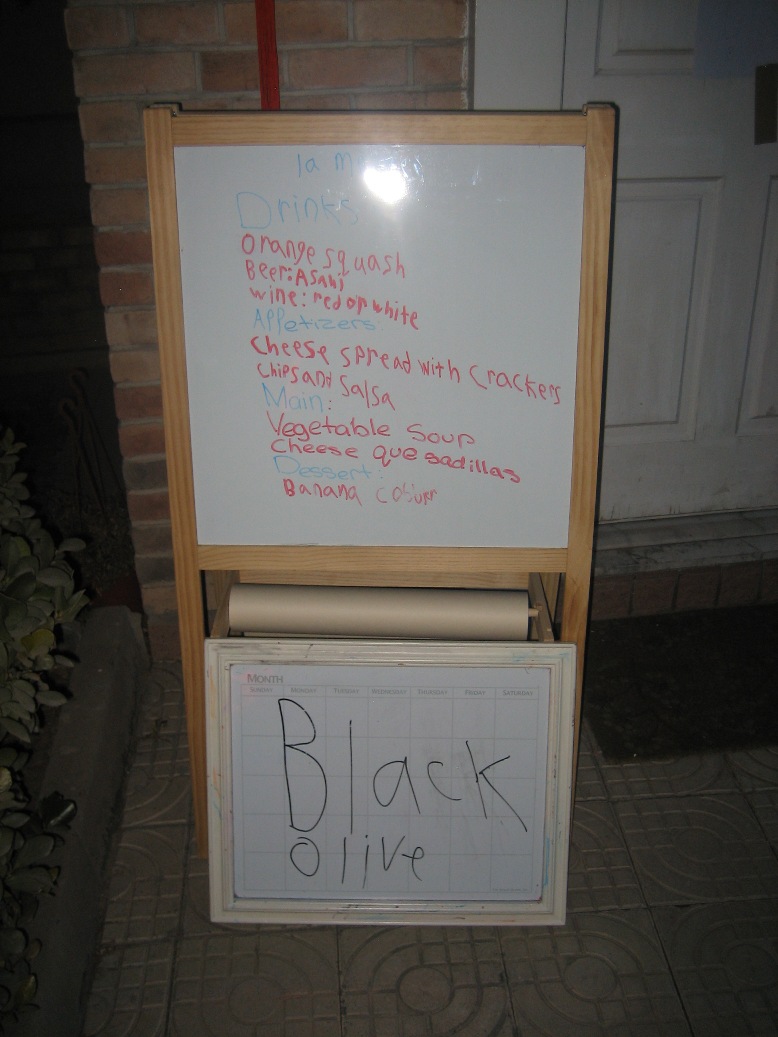 la
Drinks
Orange squash
Beer: Asahi
wine: red or white
Appetizers:
Cheese spread with crackers
Chips and Salsa
Main:
Vegetable Soup
Cheese quesadillas
Dessert:
Banana cobbler
MONTH
SUNDAY MONDAY TUESDAY WEDNESDAY THURSDAY FRIDAY SATURDAY
Black
olive